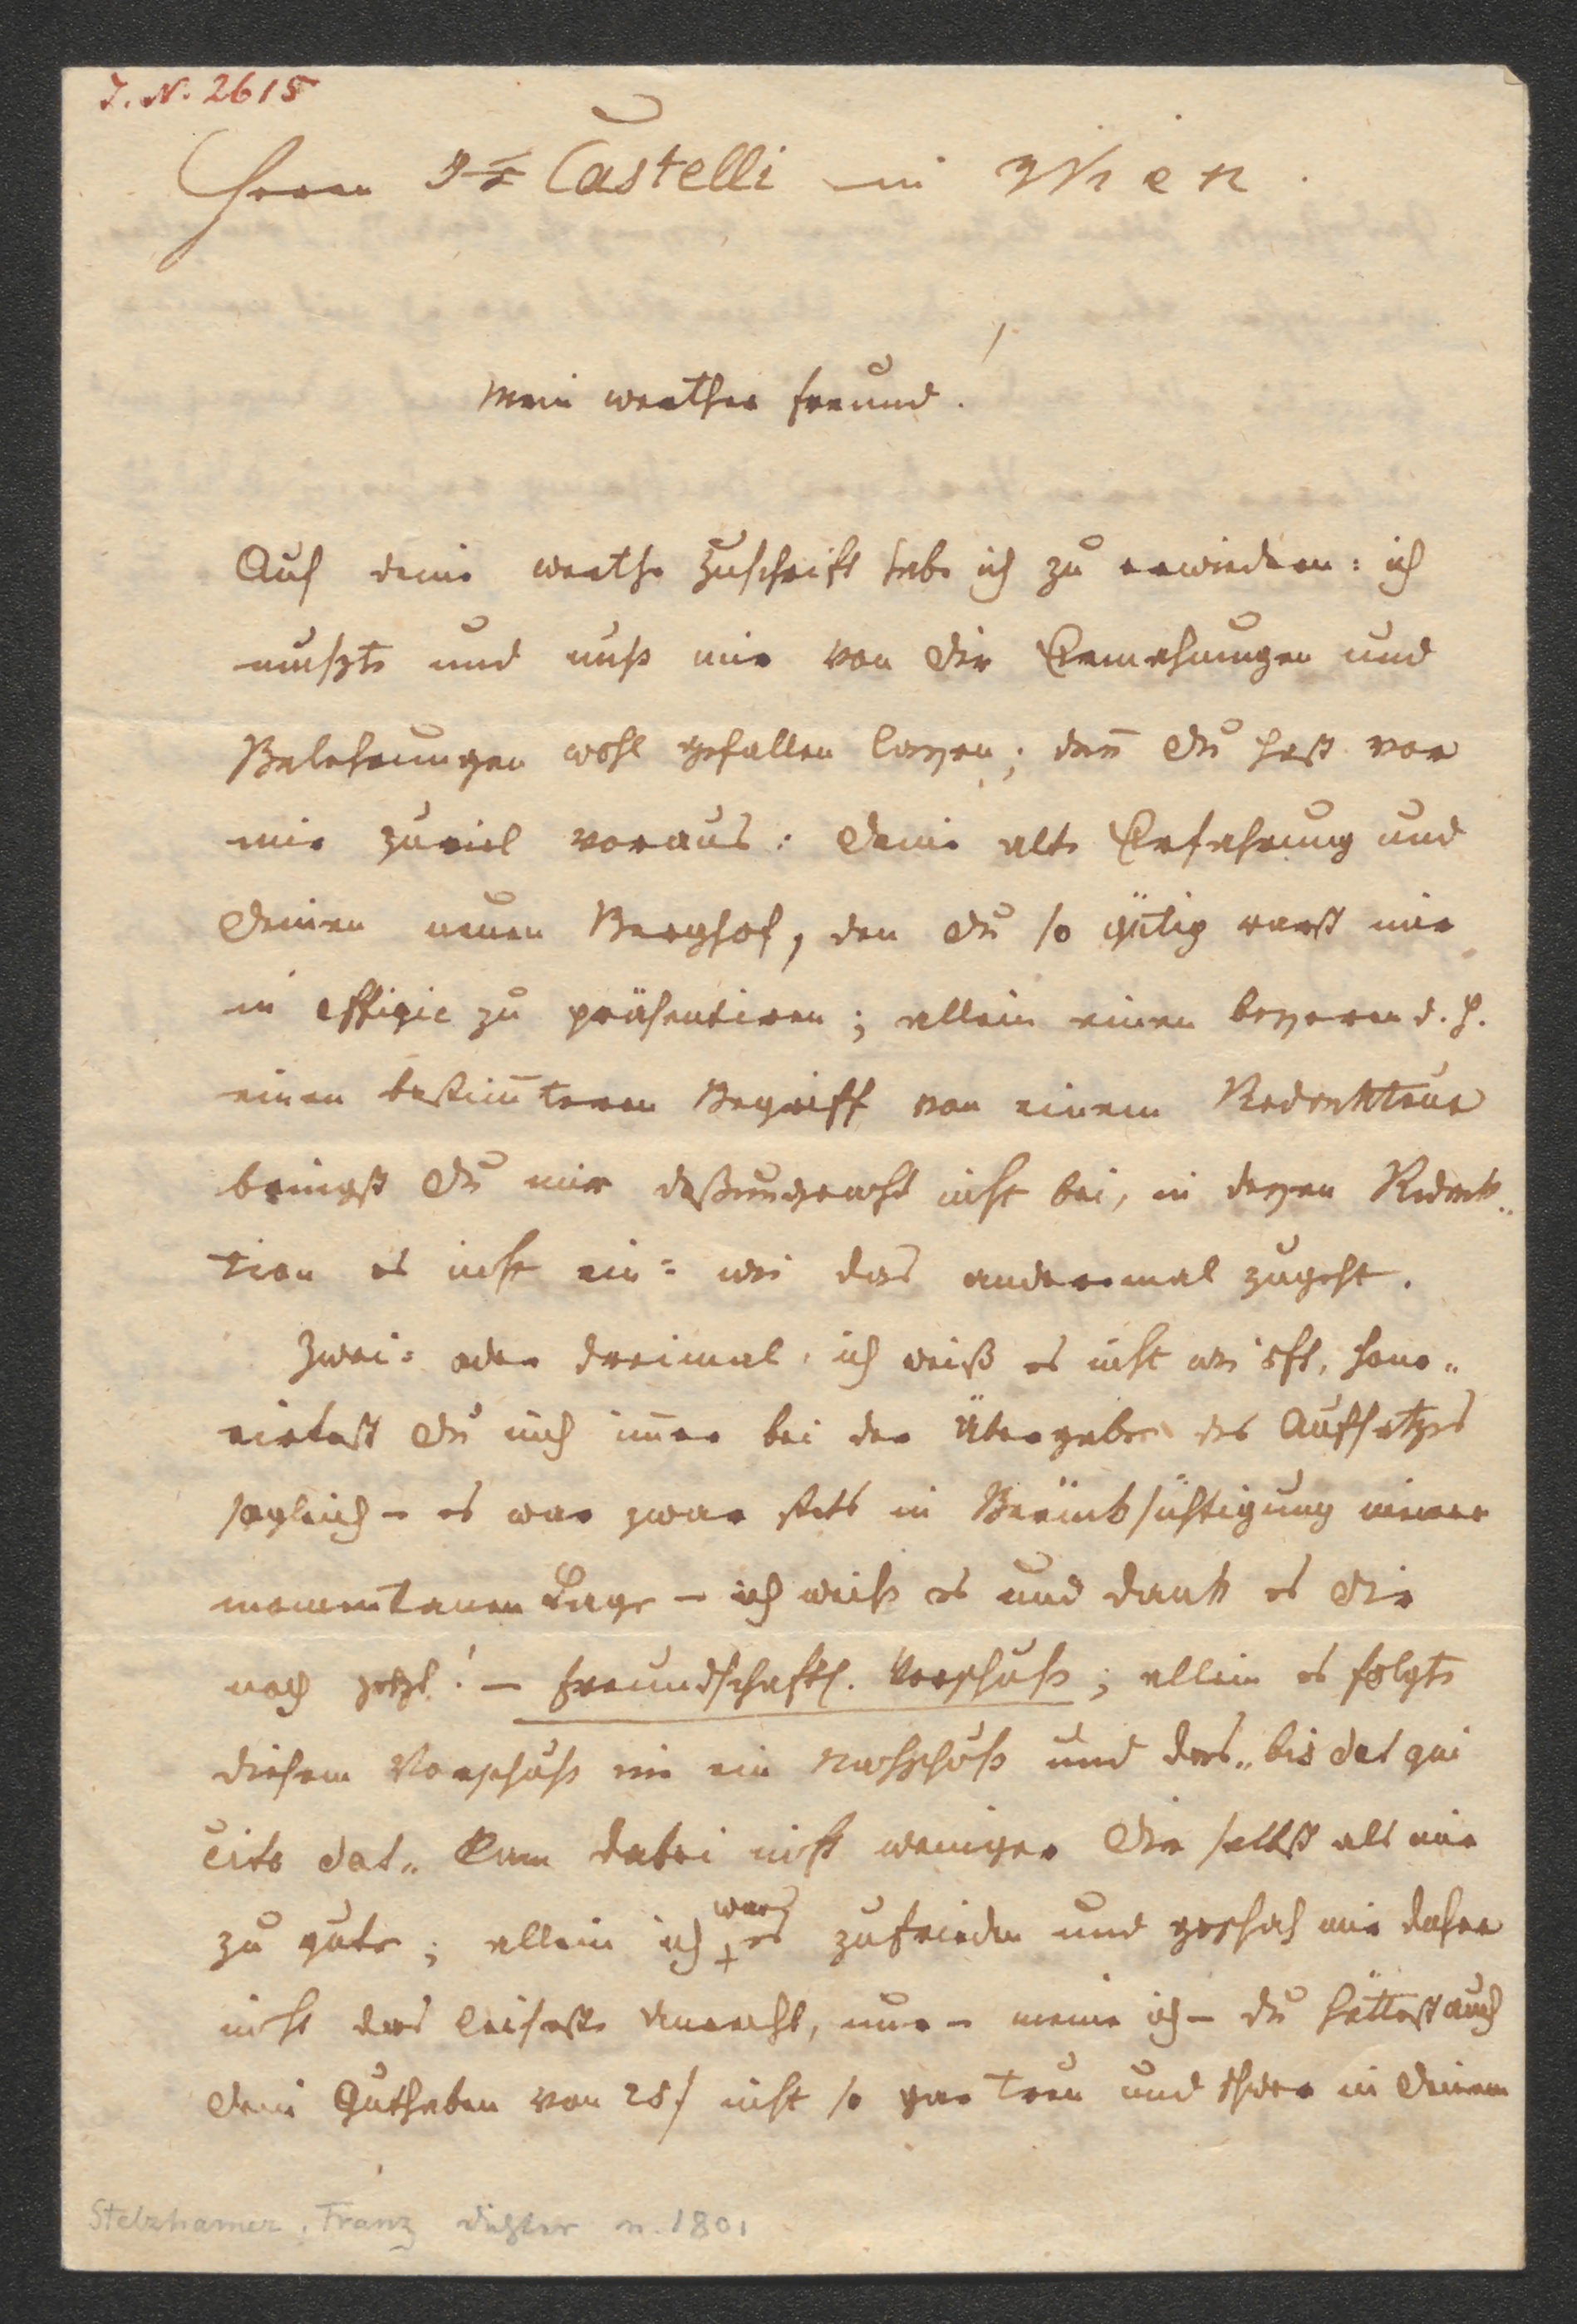 I. N. 2615
Herrn Castelli in Wien.
Mein werther Freund!
Auf deine werthe Zuschrift habe ich zu erwiedern: ich
mußte und muß mir von Dir Ermahnungen und
Belehrungen wohl gefallen lassen; denn Du hast vor
mir zuviel voraus: Deine alte Erfahrung und
Deinen neuen Berghof, den Du so gütig warst mir
in effigie zu präsentiren; allein einen bessern d. h.
einen bestim̅teren Begriff von einem Redakteur
bringst Du mir deßungeacht nicht bei, in dessen Redak„
tion es nicht ein= wie das anderemal zugeht.
Zwei= oder dreimal, ich weiß es nicht wie oft, hono„
rirtest Du mich im̅er bei der Übergabe des Aufsatzes
sogleich – es war zwar stets in Berücksichtigung meiner
momentanen Lage – ich weiß es und dank es Dir
noch jetzt! – freundschaftl. Vorschuß; allein es folgte
diesem Vorschuß nie ein Nachschuß und das „bis dat qui
cito dat„ kam dabei nicht weniger Dir selbst als mir
zu gute; allein ich war's zufrieden und geschah mir daher
nicht das leiseste Unrecht, nur – meine ich – du hättest auch
dein Guthaben von 25f nicht so gar treu und in Deinem
Stelzhamer, Franz Dichter n. 1801